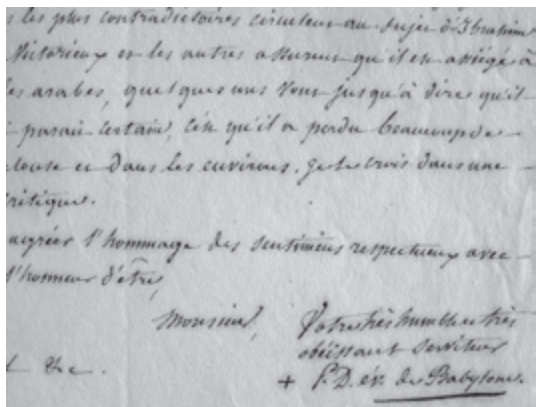 s les plus contradictoires circulent au sujet d'Ibrahim
Victorieux et les autres assurent qu'il est assiégé à
les arabes, quelques uns vont jusqu'à dire qu'il
parait certain, c'est qu'il a perdu beaucoup de
et dans les environs. je le crois dans une
critique.
agréer l'hommage des sentimens respectueux avec
l'honneur d'être,
Monsieur,
Votre très humble et très
obéissant serviteur
&c.
+ P. D. év. de Babylone.